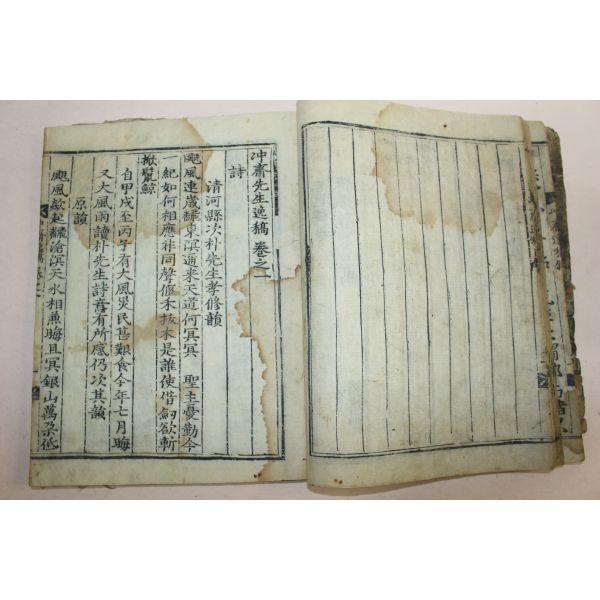 冲齋先生逸稿 卷之一
詩
淸河縣次朴先生孝修韻
颶風連歲飜東溟通來天道何冥冥 聖主憂勤今
一紀如何相應非同聲偃禾拔木是誰使借劒欲斬
掀鬣鯨
自甲戌至丙午有大風災民甚艱食今年七月晦
又大風雨讀朴先生詩意有所感仍次其韻
原韻
颶風欻起飜滄溟天水相兼晦且冥銀山萬朶低